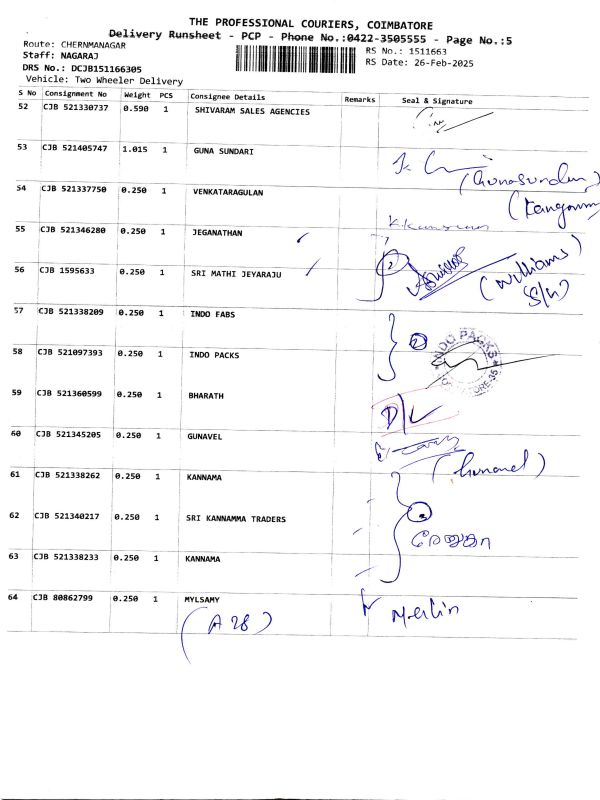 THE PROFESSIONAL COURIERS, COIMBATORE
Delivery Runsheet - PCP - Phone No.:0422-3505555 - Page No.:5
Route: CHERNMANAGAR RS No.: 1511663
Staff: NAGARAJ RS Date: 26-Feb-2025
DRS No.: DCJB151166305
Vehicle: Two Wheeler Delivery
S No Consignment No Weight PCS Consignee Details Remarks Seal & Signature
52 CJB 521330737 0.590 1 SHIVARAM SALES AGENCIES
53 CJB 521405747 1.015 1 GUNA SUNDARI
(Gunasundari)
54 CJB 521337750 0.250 1 VENKATARAGULAN
55 CJB 521346280 0.250 1 JEGANATHAN
56 CJB 1595633 0.250 1 SRI MATHI JEYARAJU
2 (Williams)
S/H)
57 CJB 521338209 0.250 1 INDO FABS
2
58 CJB 521097393 0.250 1 INDO PACKS
INDO PACKS
59 CJB 521360599 0.250 1 BHARATH
D/L
60 CJB 521345205 0.250 1 GUNAVEL
(Gunavel)
61 CJB 521338262 0.250 1 KANNAMA
62 CJB 521340217 0.250 1 SRI KANNAMMA TRADERS
3
63 CJB 521338233 0.250 1 KANNAMA
64 CJB 80862799 0.250 1 MYLSAMY
Merlin
(A 28)